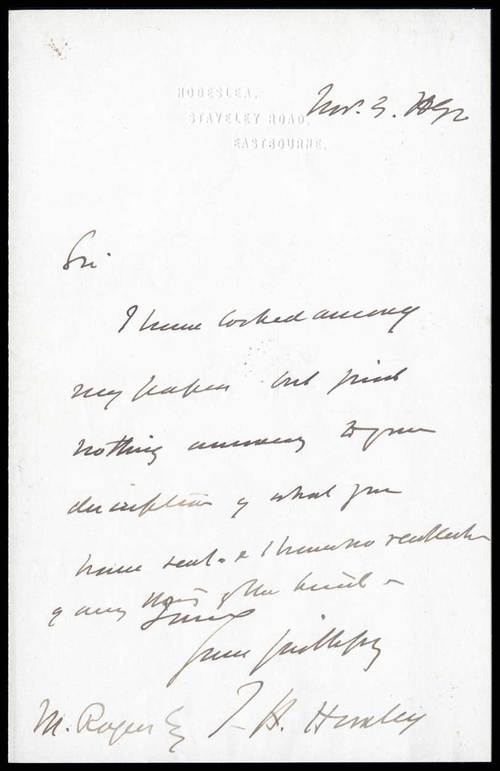 HODESLEA,
STAVELEY ROAD,
EASTBOURNE.
Nov. 3. 1892
Sir
I have looked among
my papers but find
nothing answering to your
description of what you
have sent & I have no recollection
of any thing of the kind –
I am
Yours faithfully
T. H. Huxley
M. Rogers Esq